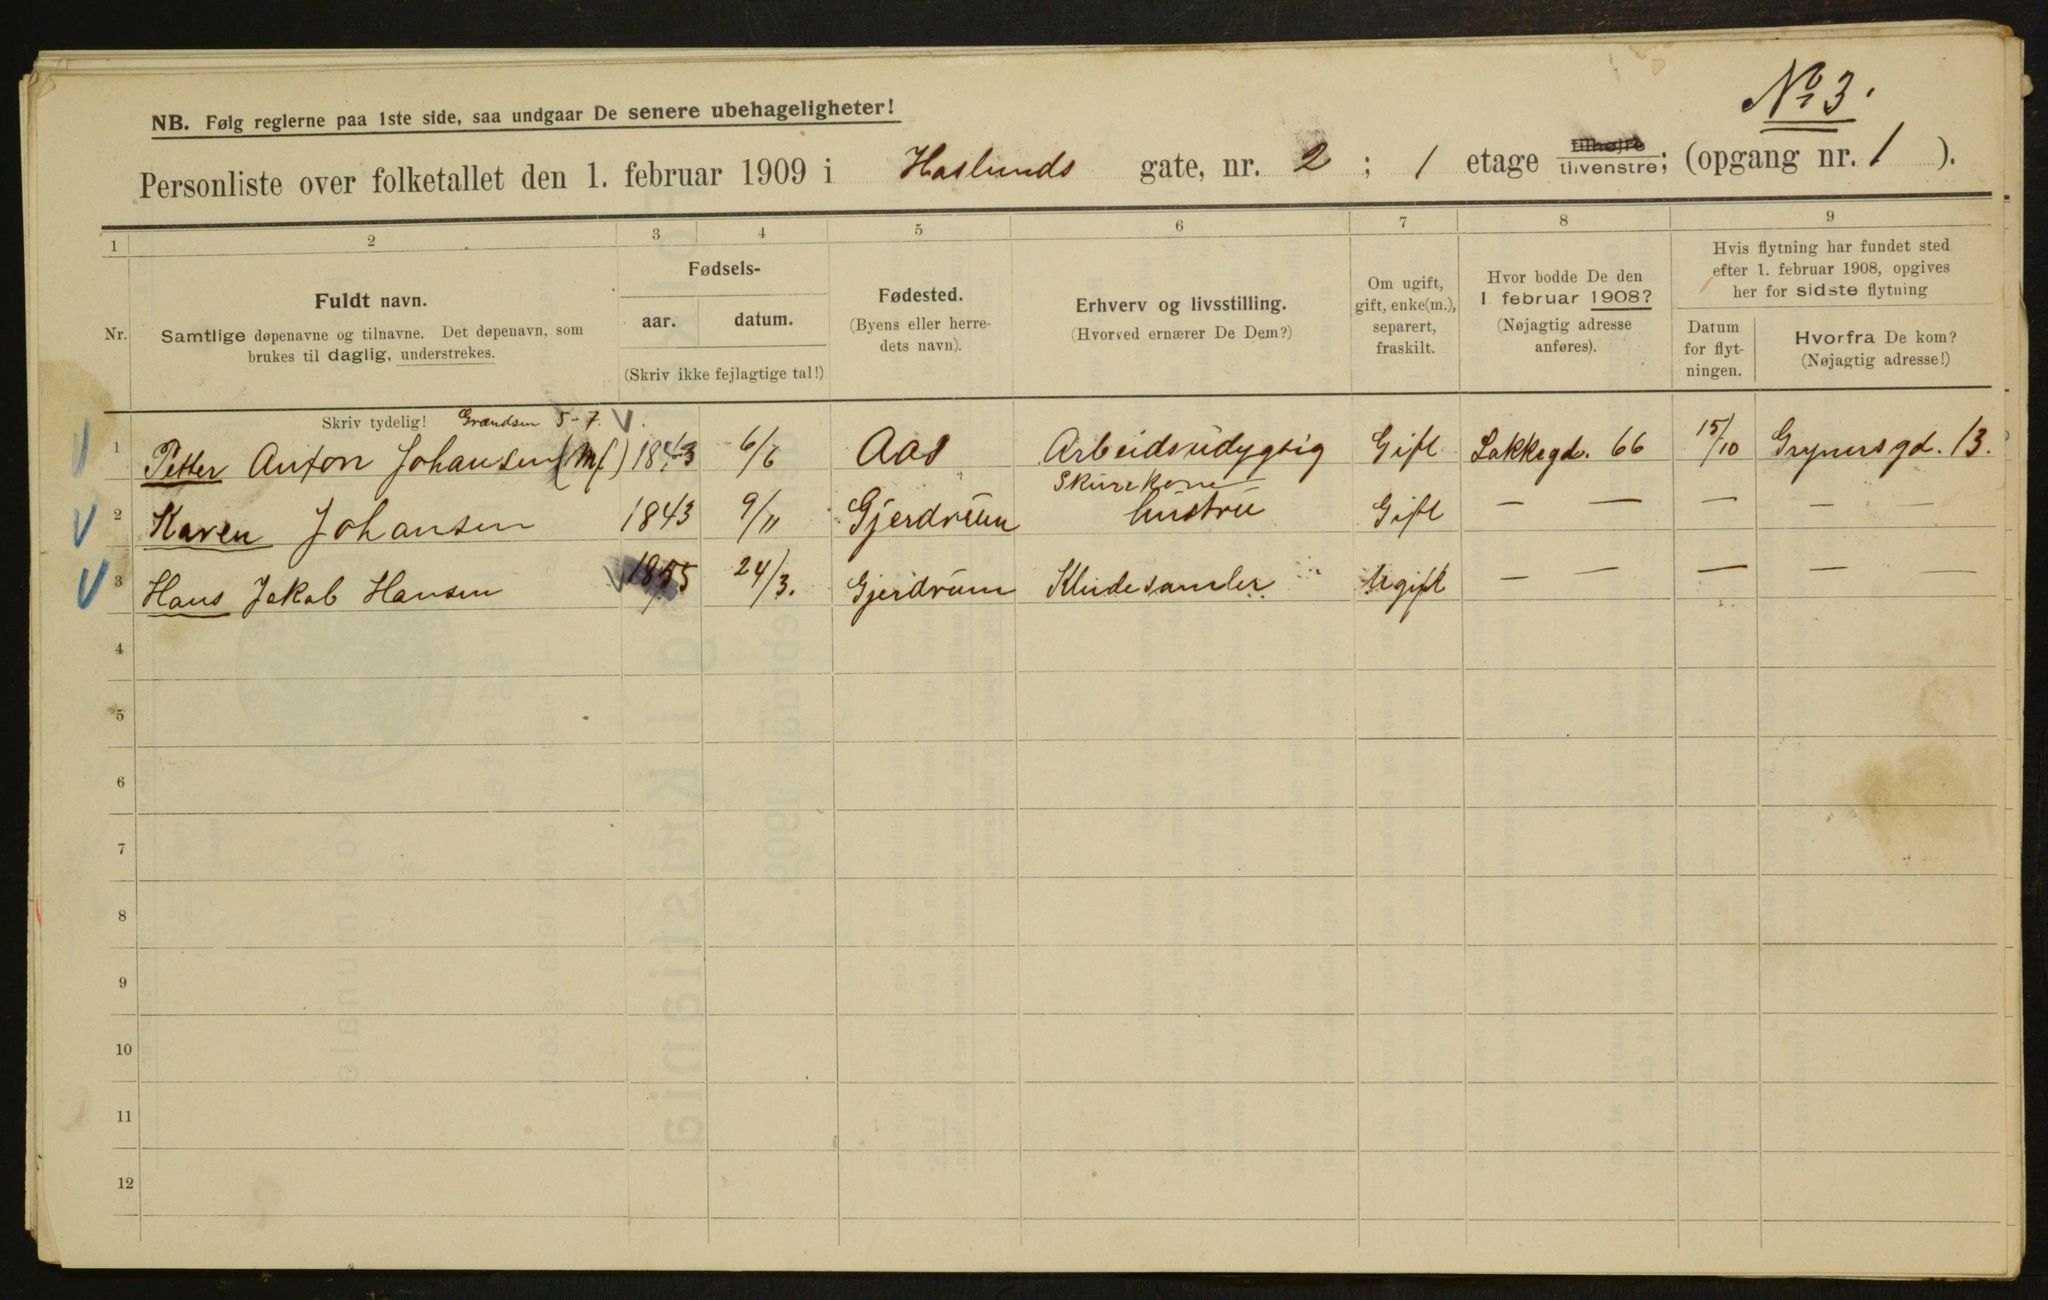 No 3.
NB. Følg reglerne paa 1ste side, saa undgaar De senere ubehageligheter!
Personliste over folketallet den 1. februar 1909 i Haslunds gate, nr. 2 ; 1 etage tilhøjre tilvenstre; (opgang nr. 1 ).
1 2 3 4 5 6 7 8 9
Nr.
Fuldt navn.
Samtlige døpenavne og tilnavne. Det døpenavn, som
brukes til daglig, understrekes.
Fødsels-
aar. datum.
(Skriv ikke fejlagtige tal!)
Fødested.
(Byens eller herre-
dets navn).
Erhverv og livsstilling.
(Hvorved ernærer De Dem?)
Om ugift,
gift, enke(m.),
separert,
fraskilt.
Hvor bodde De den
1. februar 1908?
(Nøjagtig adresse
anføres).
Hvis flytning har fundet sted
efter 1. februar 1908, opgives
her for sidste flytning
Datum
for flyt-
ningen.
Hvorfra De kom?
(Nøjagtig adresse!)
Skriv tydelig! Grændsen 5-7. V
1 Petter Anton Johansen (Mf) 1843 6/6 Aas Arbeidsudygtig Gift Lakkegd. 66 15/10 Grynersgd. 13.
Skurekone
2 Karen Johansen 1843 9/11 Gjerdrum hustru Gift — — — — —
3 Hans Jakob Hansen 1855 24/3. Gjerdrum Kludesamler Ugift — — — — —
4
5
6
7
8
9
10
11
12